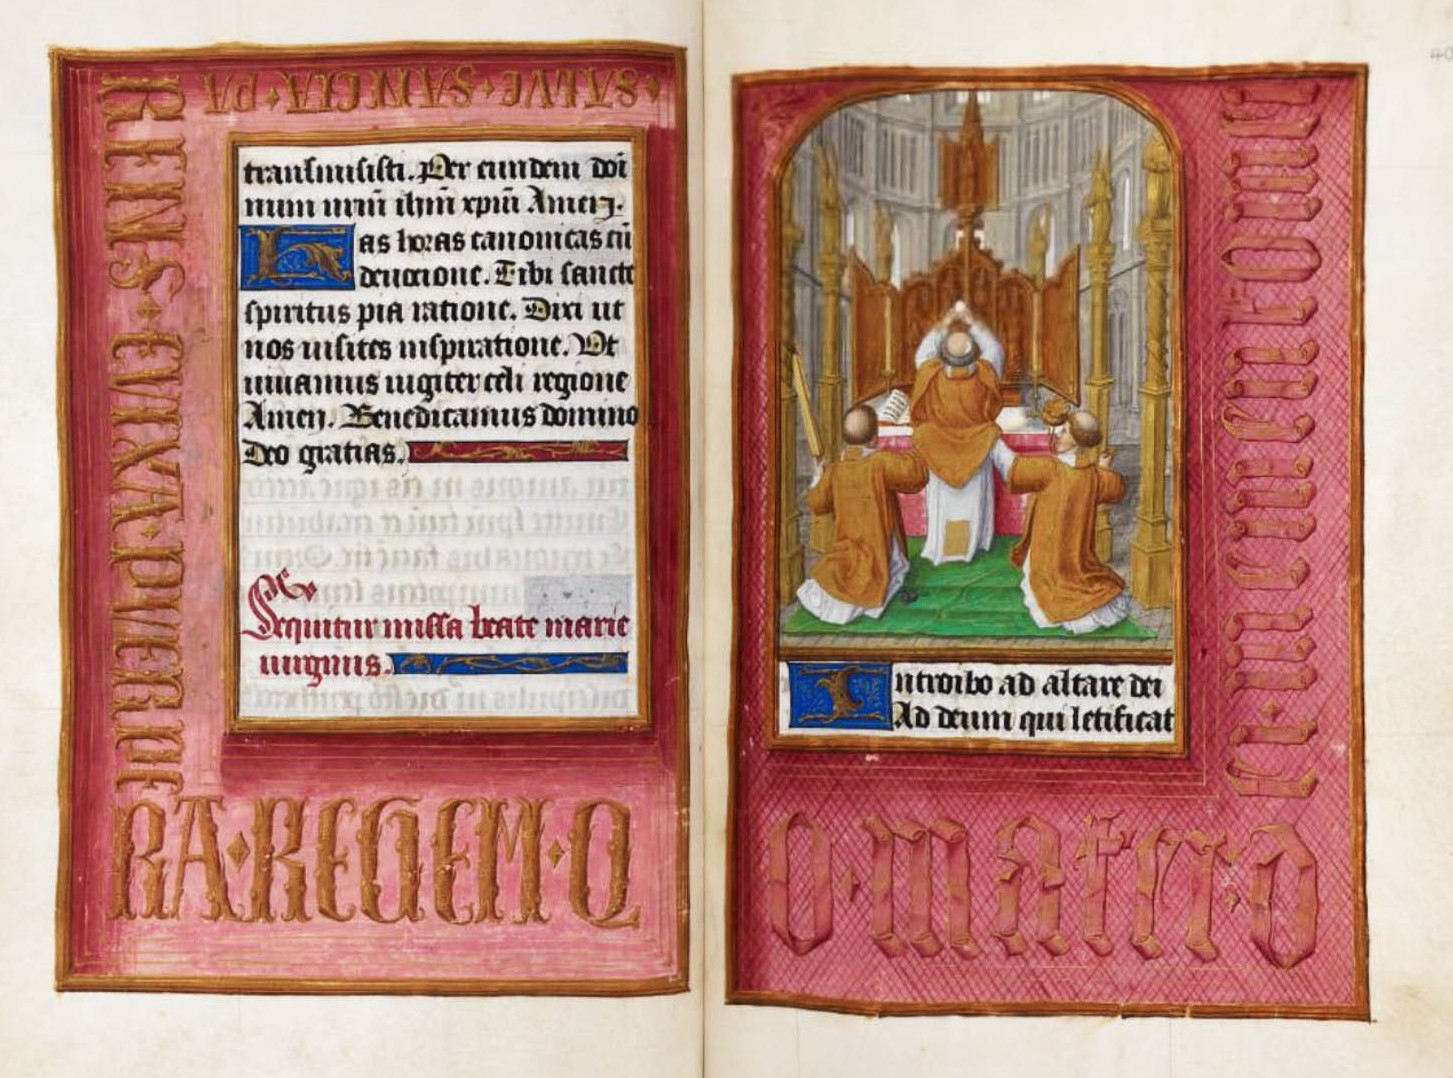 SALVE · SANCTA · PA
RENS · ENIXA · PVERPE
RA · REGEM · Q
transmisisti. Per eundem doi
num nrm ihm xpm Amen.
Has horas canonicas cu
deuocione. Tibi sancte
spiritus pia ratione. Dixi ut
nos uisites inspiratione. Vt
uiuamus iugiter celi regione
Amen. Benedicamus domino
Deo gratias.
Sequitur missa beate marie
uirginis.
Introibo ad altare dei
Ad deum qui letificat
O · mater · d
40